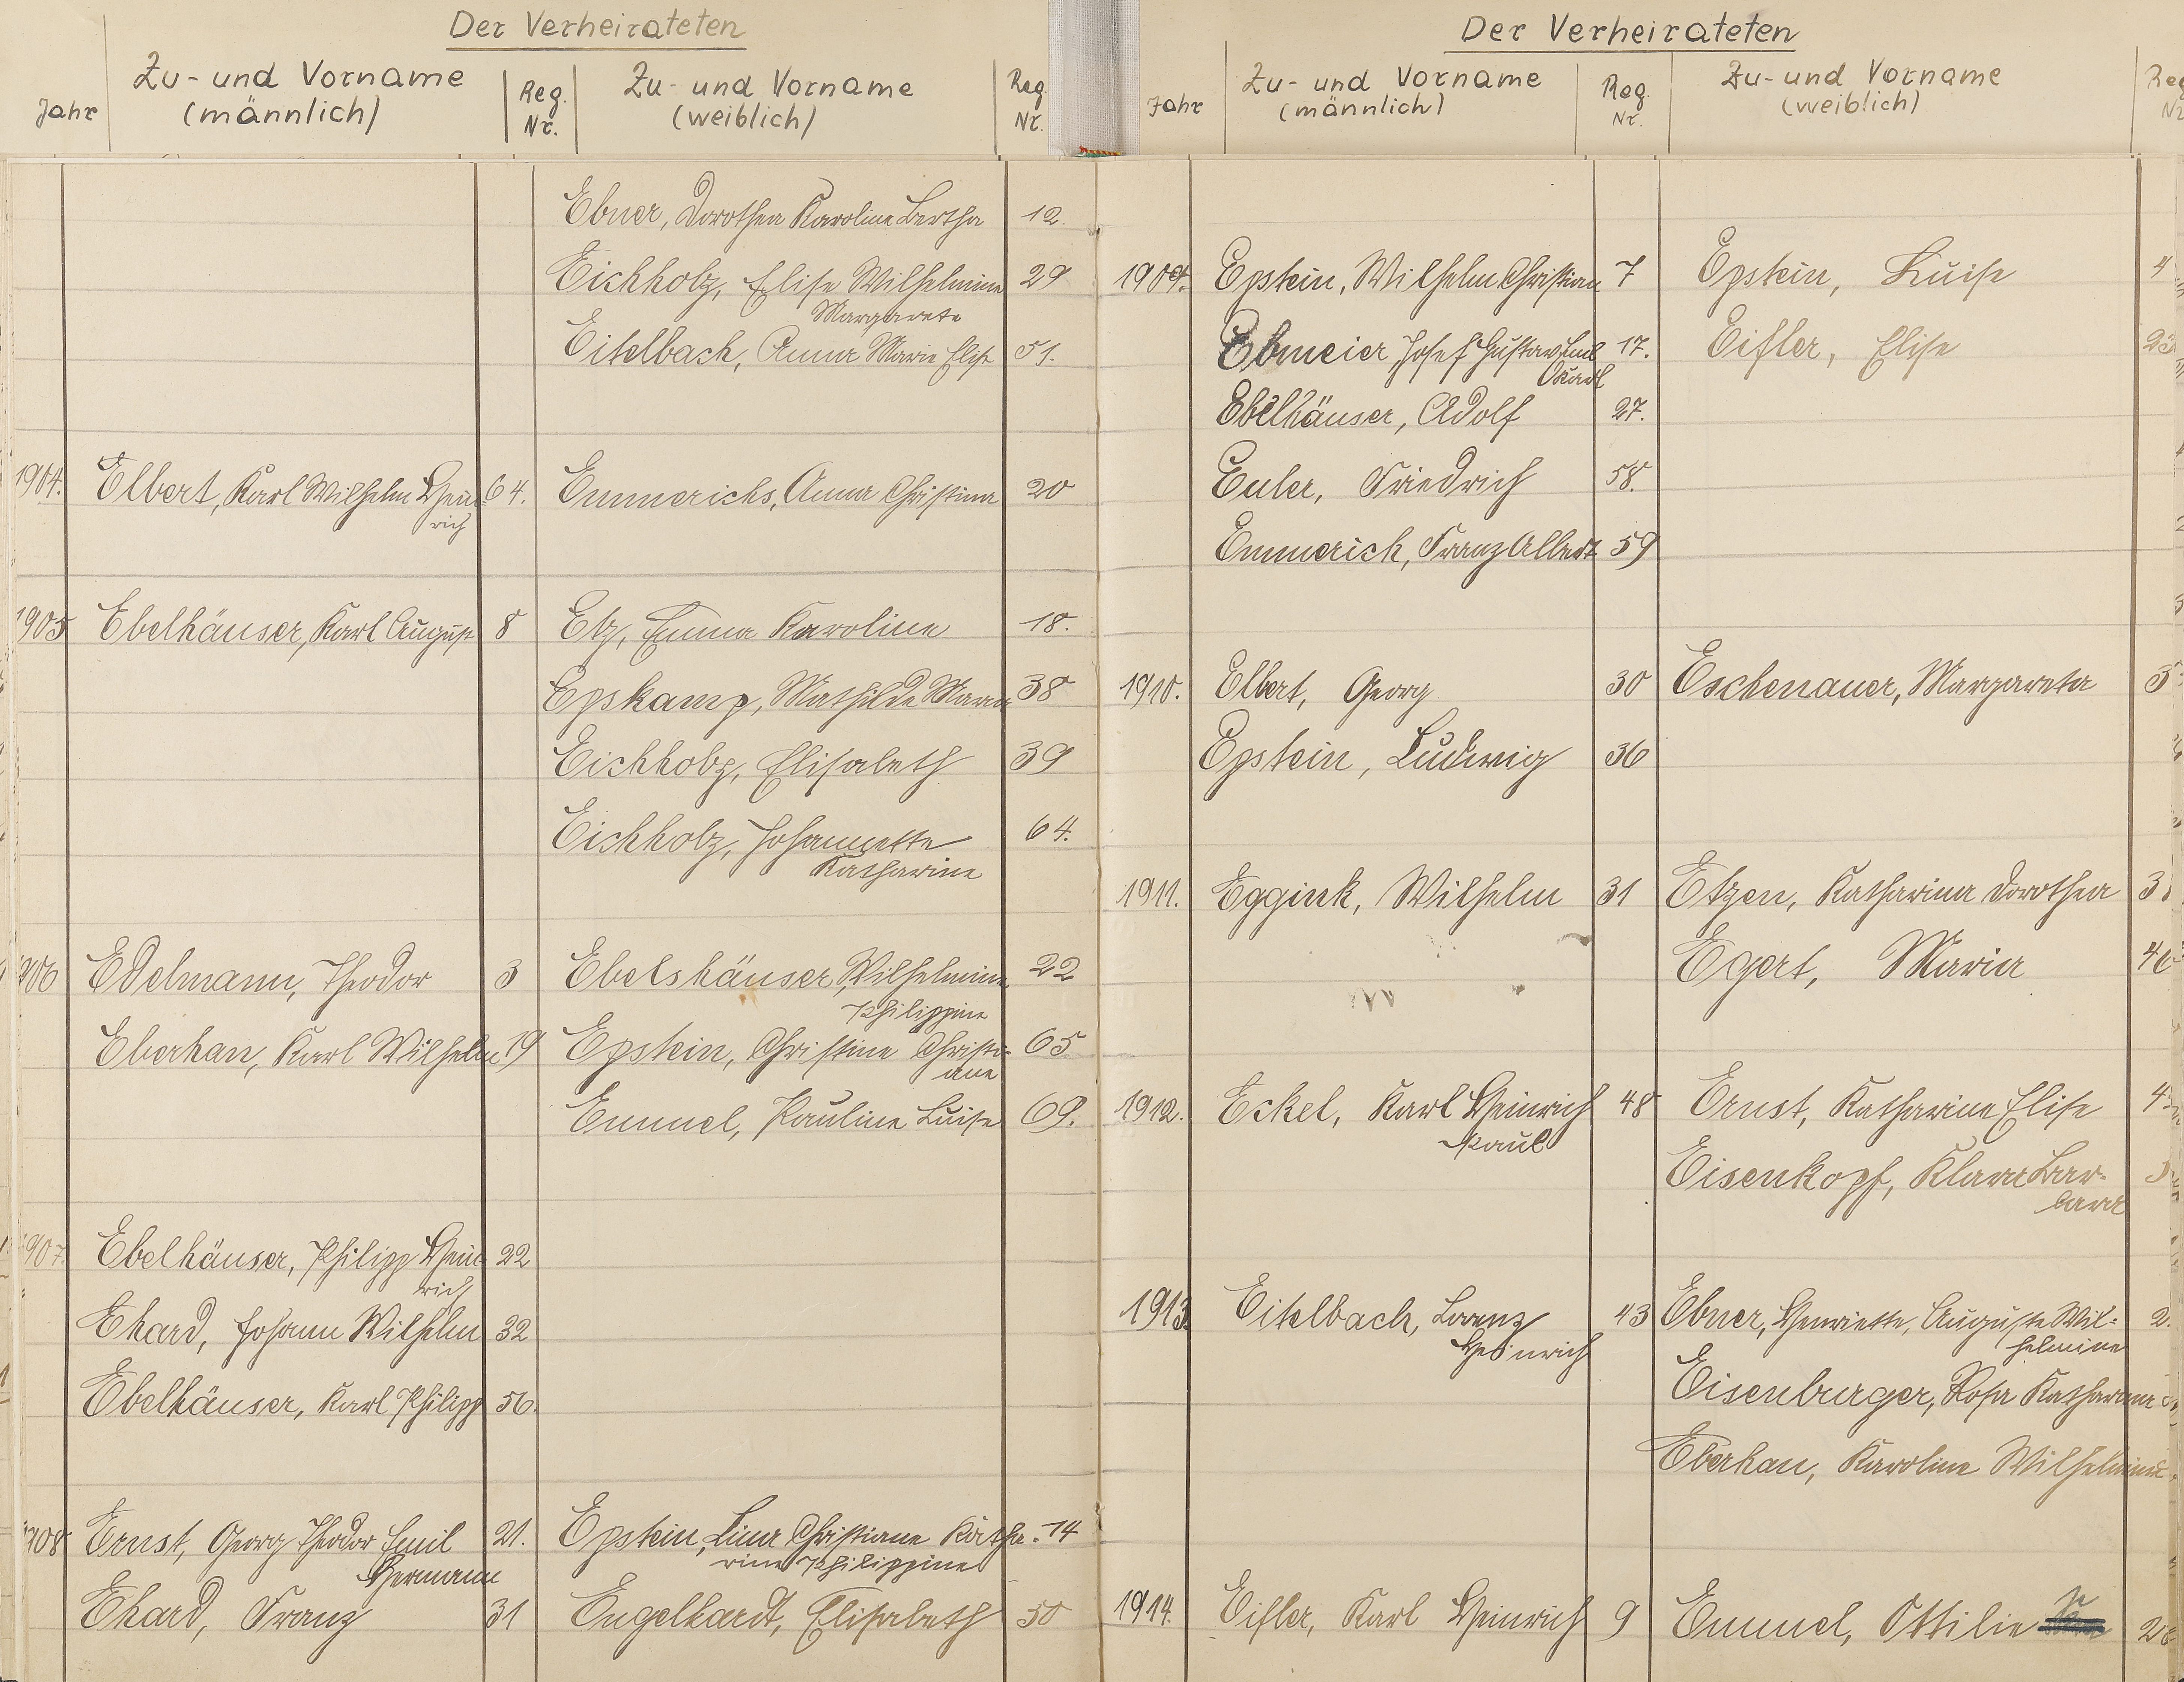 Der Verheirateten
Jahr Zu- und Vorname (männlich) Reg. Nr. Zu- und Vorname (weiblich) Reg. Nr.
Ebner, Dorothea Karoline Bertha 12.
Eichholz, Elise Wilhelmine 29
Margarete
Eitelbach, Anna Marie Elise 51.
1904. Elbert, Karl Wilhelm Hein- 64. Emmerichs, Anna Christina 20
rich
1905 Ebelhäuser, Karl August 8 Etz, Emma Karoline 18.
Epskamp, Mathilde Maria 38
Eichholz, Elisabeth 39
Eichholz, Johannette 64.
Katharine
1906 Edelmann, Theodor 3 Ebelshäuser, Wilhelmine 22
Philippine
Eberhan, Karl Wilhelm 19 Epstein, Christine Christi- 65
ane
Emmel, Pauline Luise 69.
1907. Ebelhäuser, Philipp Hein- 22
rich
Ehard, Johann Wilhelm 32
Ebelhäuser, Karl Philipp 56.
1908 Ernst, Georg Theodor Emil 21. Epstein, Lina Christiane Katha- 14
Hermann rine Philippine
Ehard, Franz 31 Engelhardt, Elisabeth 50
Der Verheirateten
Jahr Zu- und Vorname (männlich) Reg. Nr. Zu- und Vorname (weiblich) Reg. Nr.
1909. Epstein, Wilhelm Christian 7 Epstein, Luise 4
Ebmeier Josef Gustav Emil 17. Eifler, Elise
Ebelhäuser, Adolf 27.
Euler, Friedrich 58.
Emmerich, Franz Albert 59
1910. Elbert, Georg 30 Eschenauer, Margareta
Epstein, Ludwig 36
1911. Eggink, Wilhelm 31 Etzen, Katharina Dorothea
Egert, Maria 46
1912. Eckel, Karl Heinrich 48 Ernst, Katharine Elise
Paul
Eisenkopf, Klara Bar-
bara
1913. Eitelbach, Lorenz 43 Ebner, Henriette, Auguste Wil-
Heinrich helmine
Eisenburger, Rosa Katharina
Eberhan, Karoline Wilhelmine
1914. Eifler, Karl Heinrich 9 Emmel, Ottilie